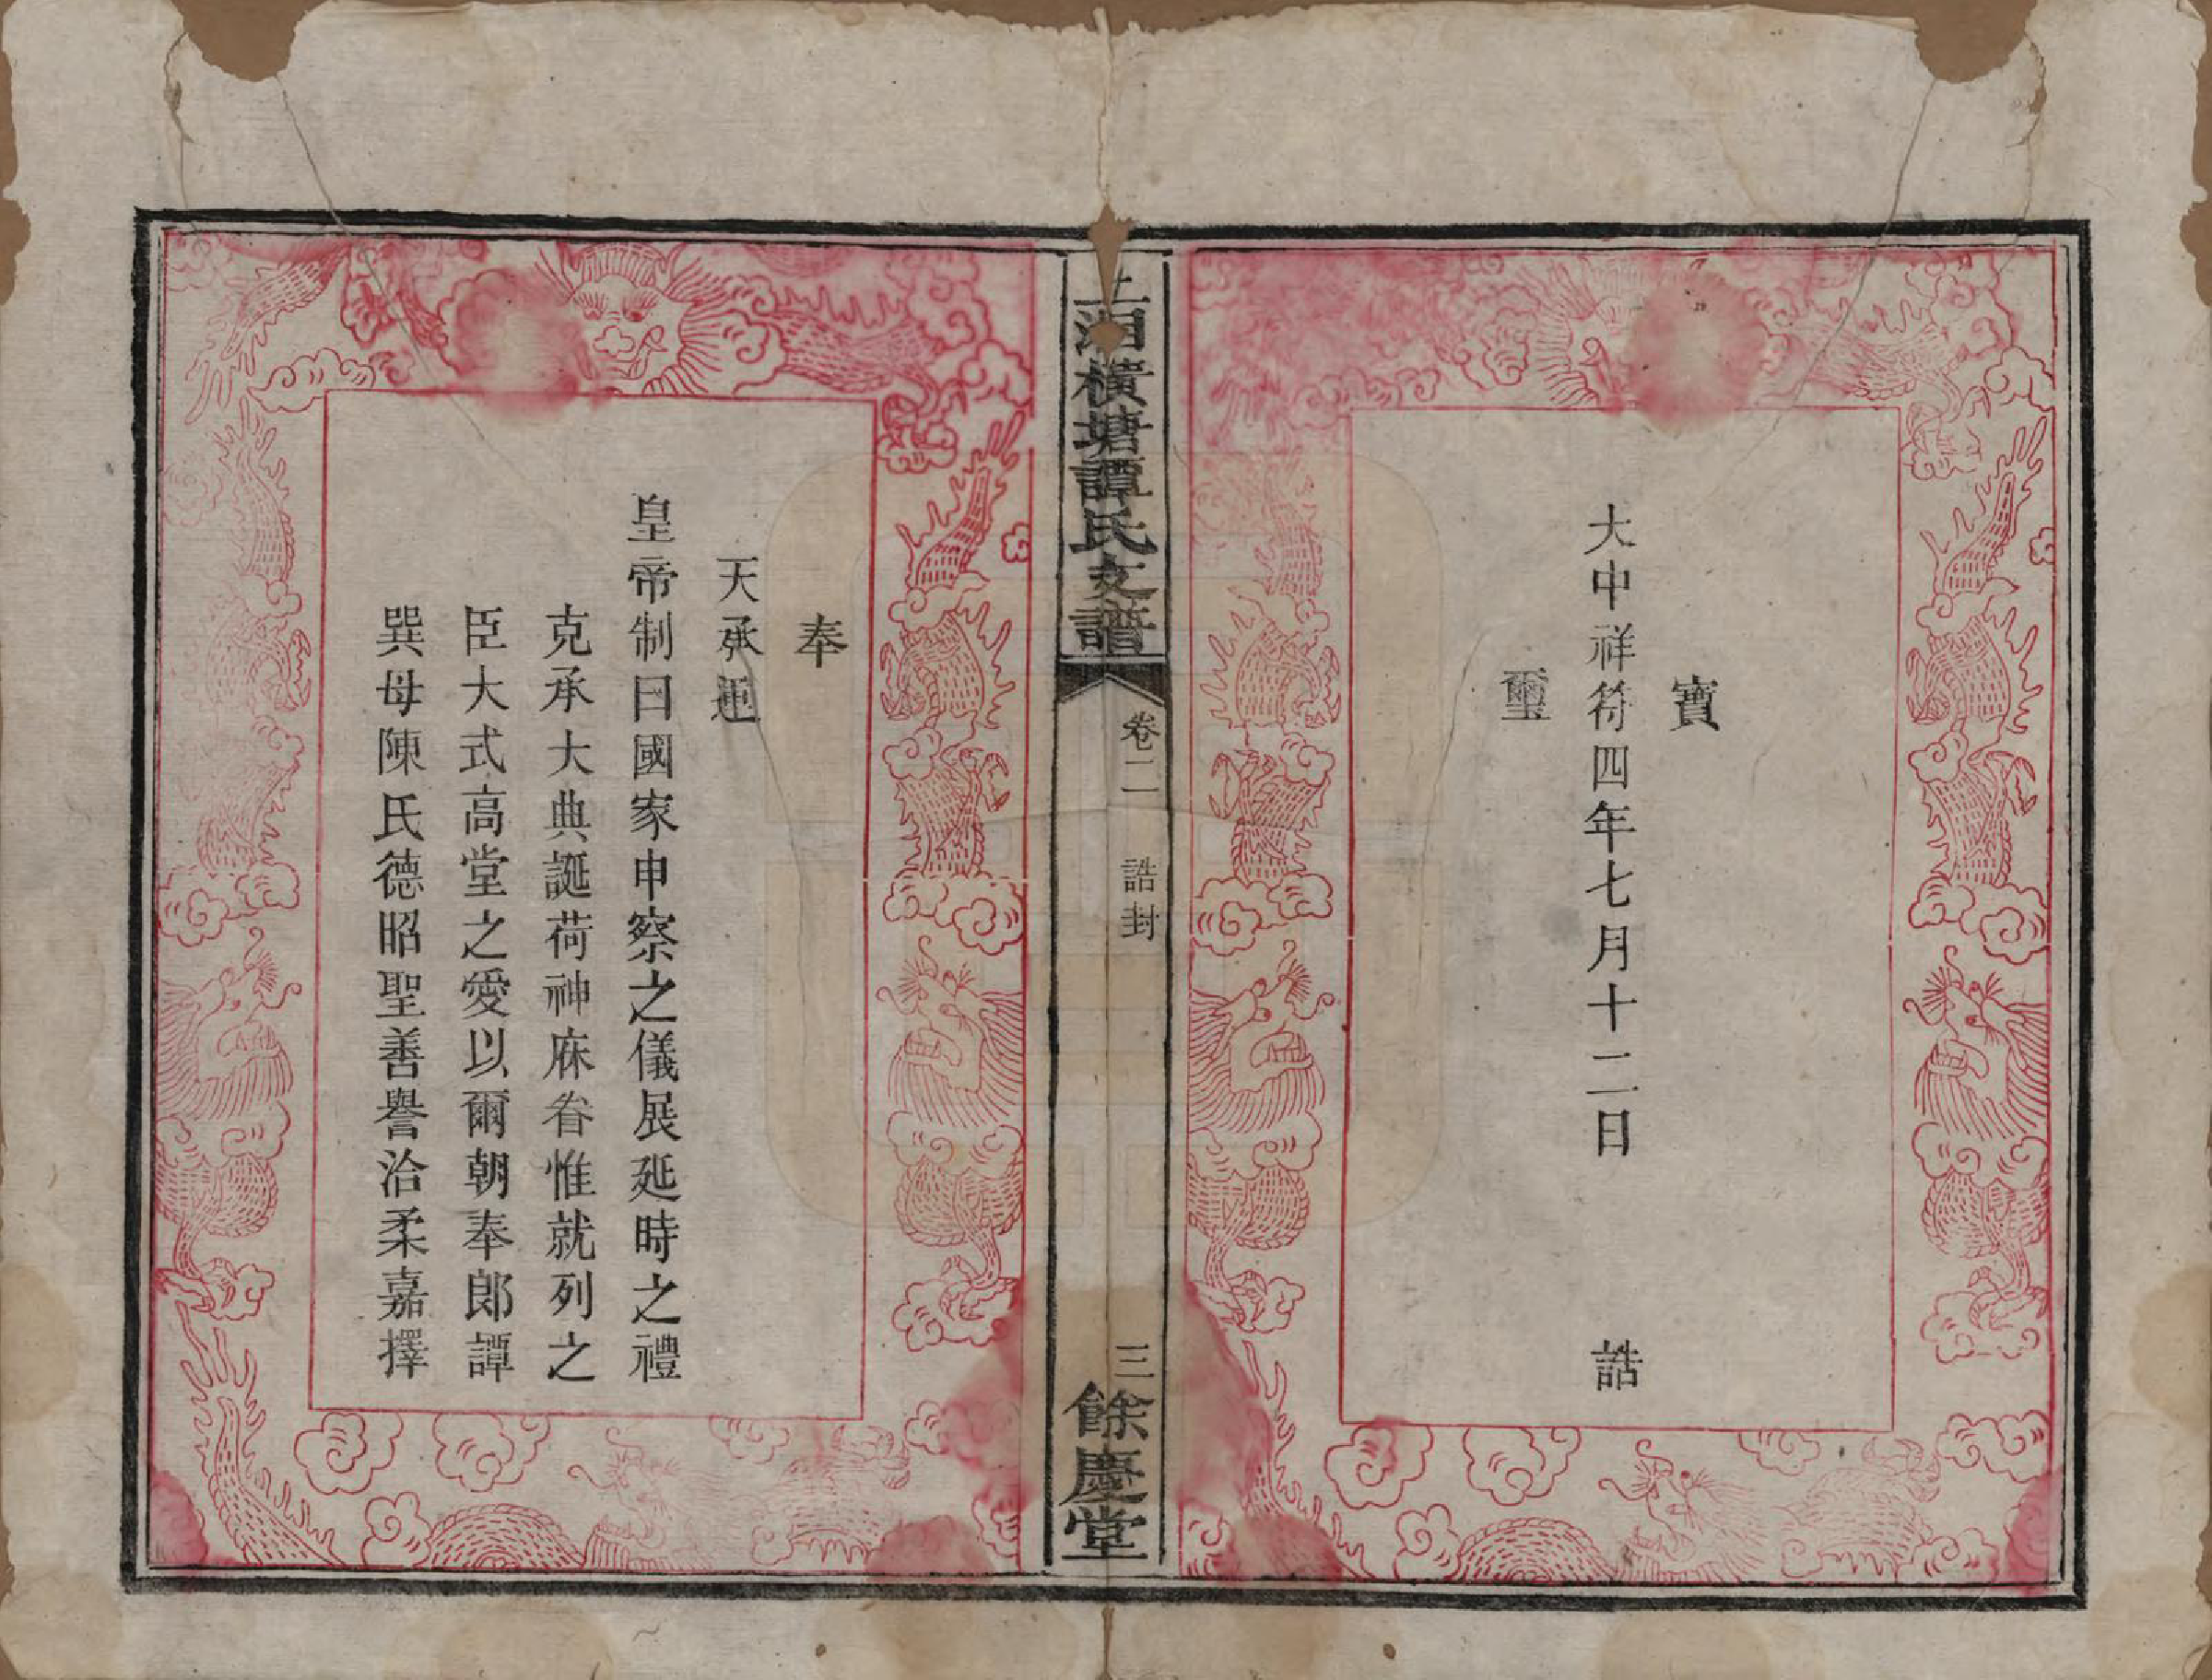 寶
大中祥符四年七月十二日　誥
璽
上湘橫塘譚氏支譜
卷二　誥封
三
餘慶堂
奉
天承運
皇帝制曰國家申察之儀展延時之禮
克承大典誕荷神庥眷惟就列之
臣大式高堂之愛以爾朝奉郎譚
巽母陳氏德昭聖善譽洽柔嘉擇